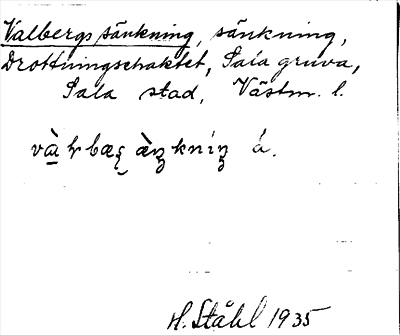 Valbergssänkning, sänkning,
Drottningschaktet, Sala gruva,
Sala stad, Västm. l.
H. Ståhl 1935